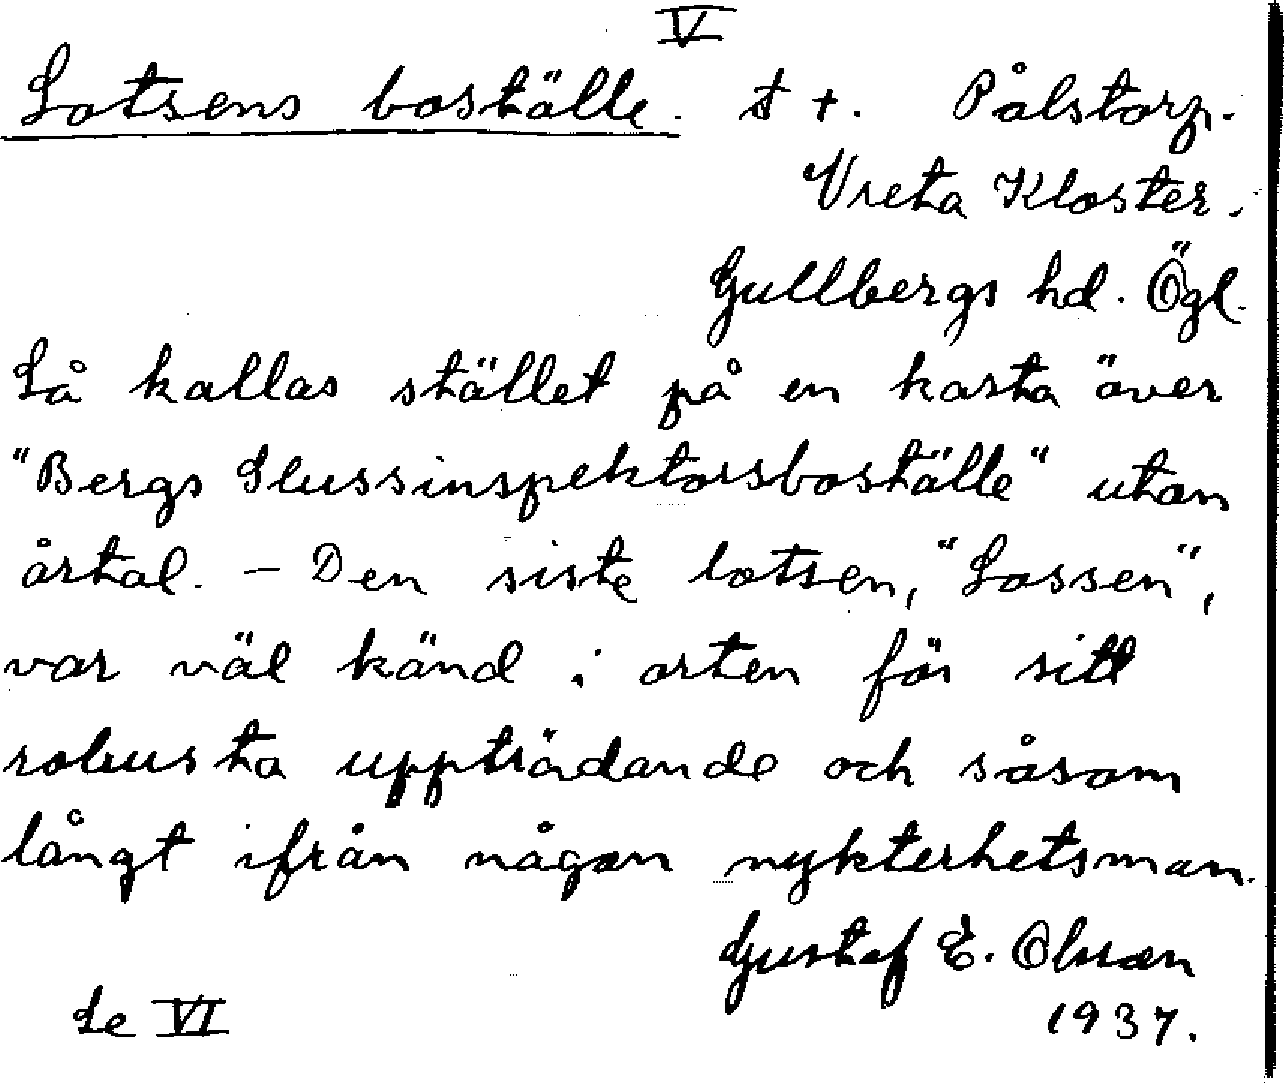 V
Lotsens boställe. t +. Pålstorp.
Vreta Kloster.
Gullbergs hd. Ögl.
Så kallas stället på en karta över
"Bergs Slussinspektorsboställe" utan
årtal. - Den siste lotsen, "Lossen",
var väl känd i orten för sitt
robusta uppträdande och såsom
långt ifrån någon nykterhetsman.
Gustaf E. Olsson
Se VI 1937.